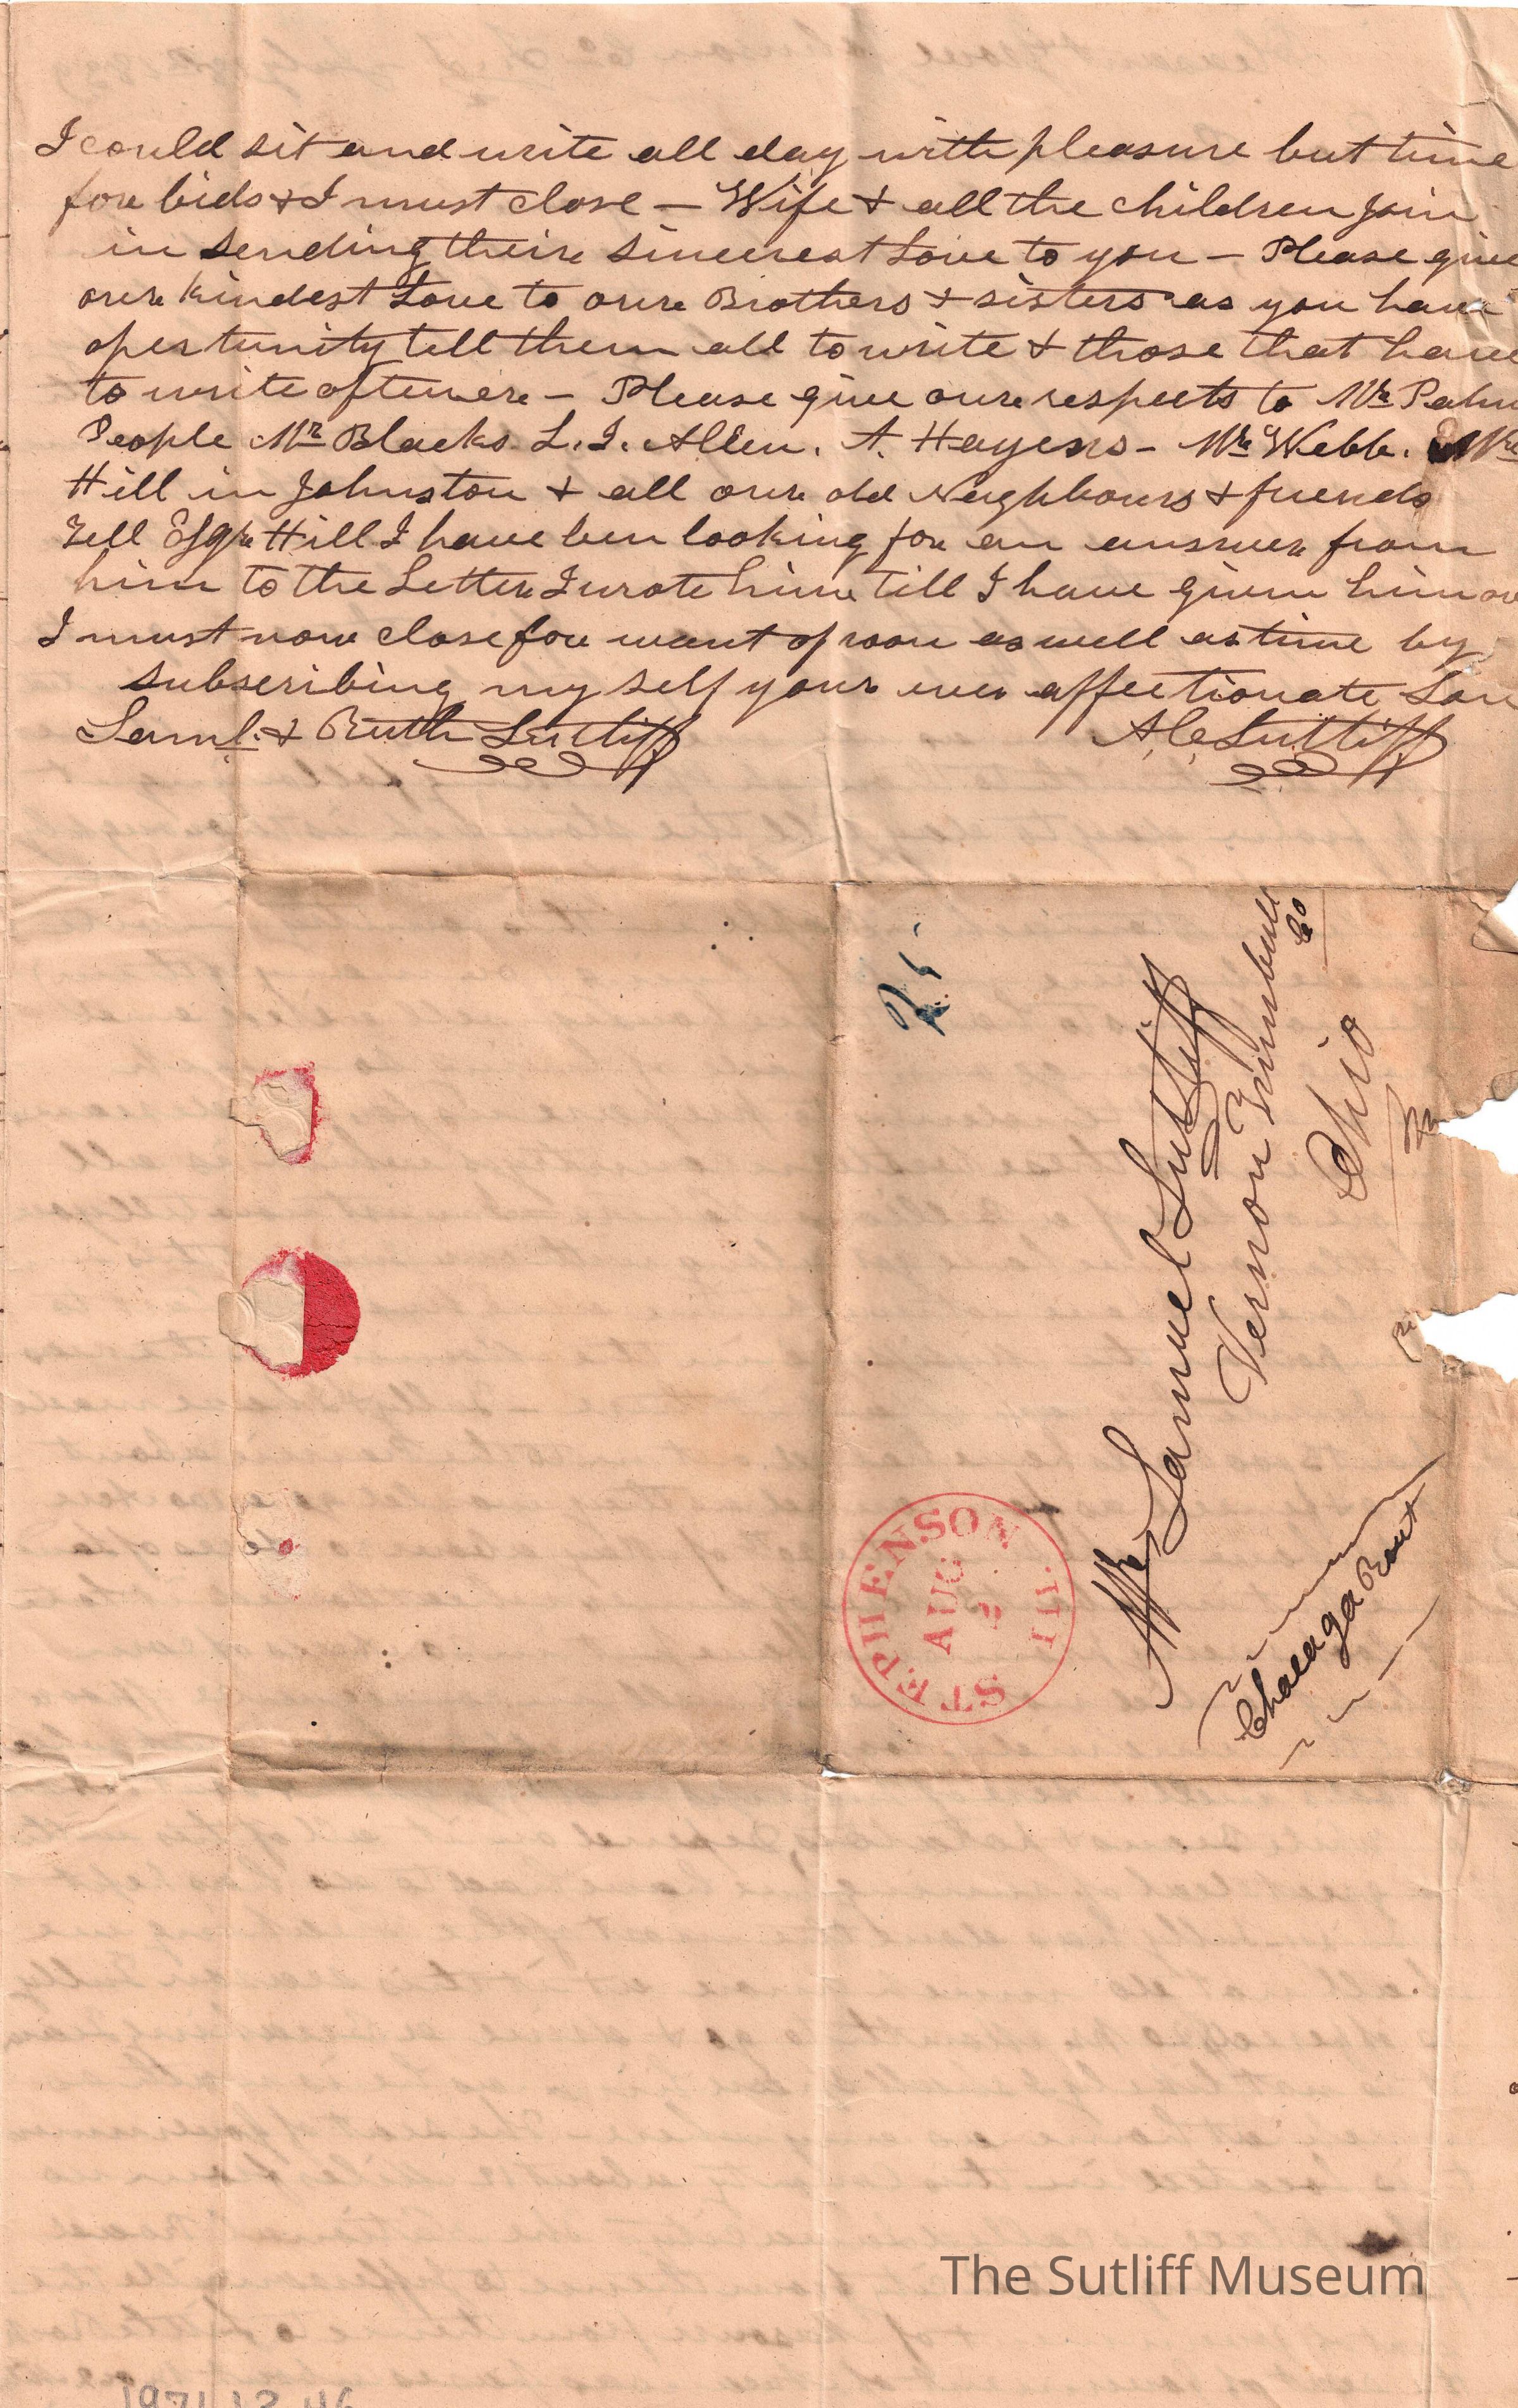 I could sit and write all day with pleasure but time
for bids & I must close — Wife & all the children join
in sending their sincerest Love to you — Please give
our kindest Love to our Brothers & sisters as you have
opertunity tell them all to write & those that have
to write oftener — Please give our respects to Mr
People Mr Blacks L. I. Allen. A. Hayens — Mr Webb.
Hill in Johnston & all our old Neighbours & friends
Tell Esqr Hill I have ben looking for an answer from
him to the Letter I wrote him till I have given him
I must now close for want of room as well as time by
subscribing my self your ever affectionate Son
Saml. & Ruth Sutliff A, C, Sutliff
25
Mr Samuel Sutliff
Vernon Trumbull
Co
Ohio
Chicaga Rout
STEPHENSON ILL
AUG
The Sutliff Museum